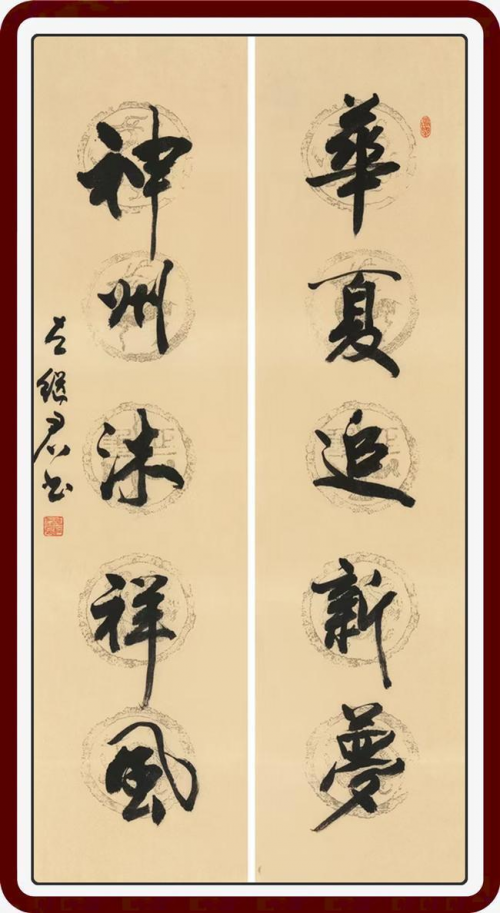 華夏追新夢
神州沐祥風
继君书